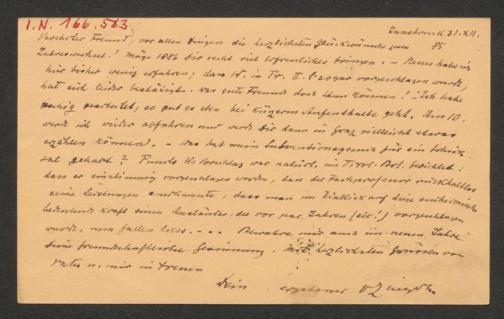 I.N. 166.563
Innsbruck 31.XII.
Verehrter Freund, vor allen Dingen die herzlichsten Glückwünsche zum 85
Jahreswechsel! Möge 1886 Dir recht viel Erfreuliches bringen. — Neues habe ich
hier bisher wenig erfahren; dass W. in Pr. II. loco vorgeschlagen wurde,
hat sich leider bestätigt. Was gute Freunde doch thun können! Ich habe
gearbeitet, so gut es eben bei kurzem Aufenthalte geht. Am 10.
werde ich wieder abfahren und werde Dir dann in Graz vielleicht etwas
erzählen können. — Was hat mein Subventionsgesuch für ein Schick-
sal gehabt? Punkto Vorschlag war natürl. im Tirol. Bot. berichtet:
dass er einstimmig vorgeschlagen worden, dass der Fachprofessor rückhaltlos
seine Leistungen anerkannte, dass man im Hinblick auf diese einheimische
bedeutende Kraft einen Ausländer, der vor par Jahren (sic!) vorgeschlagen
wurde, nun fallen liess. - - - Bewahre mir auch im neuen Jahre
Deine freundschaftliche Gesinnung. Mit herzlichsten Grüssen von
Vater u. mir in Treuen
Dein ergebener